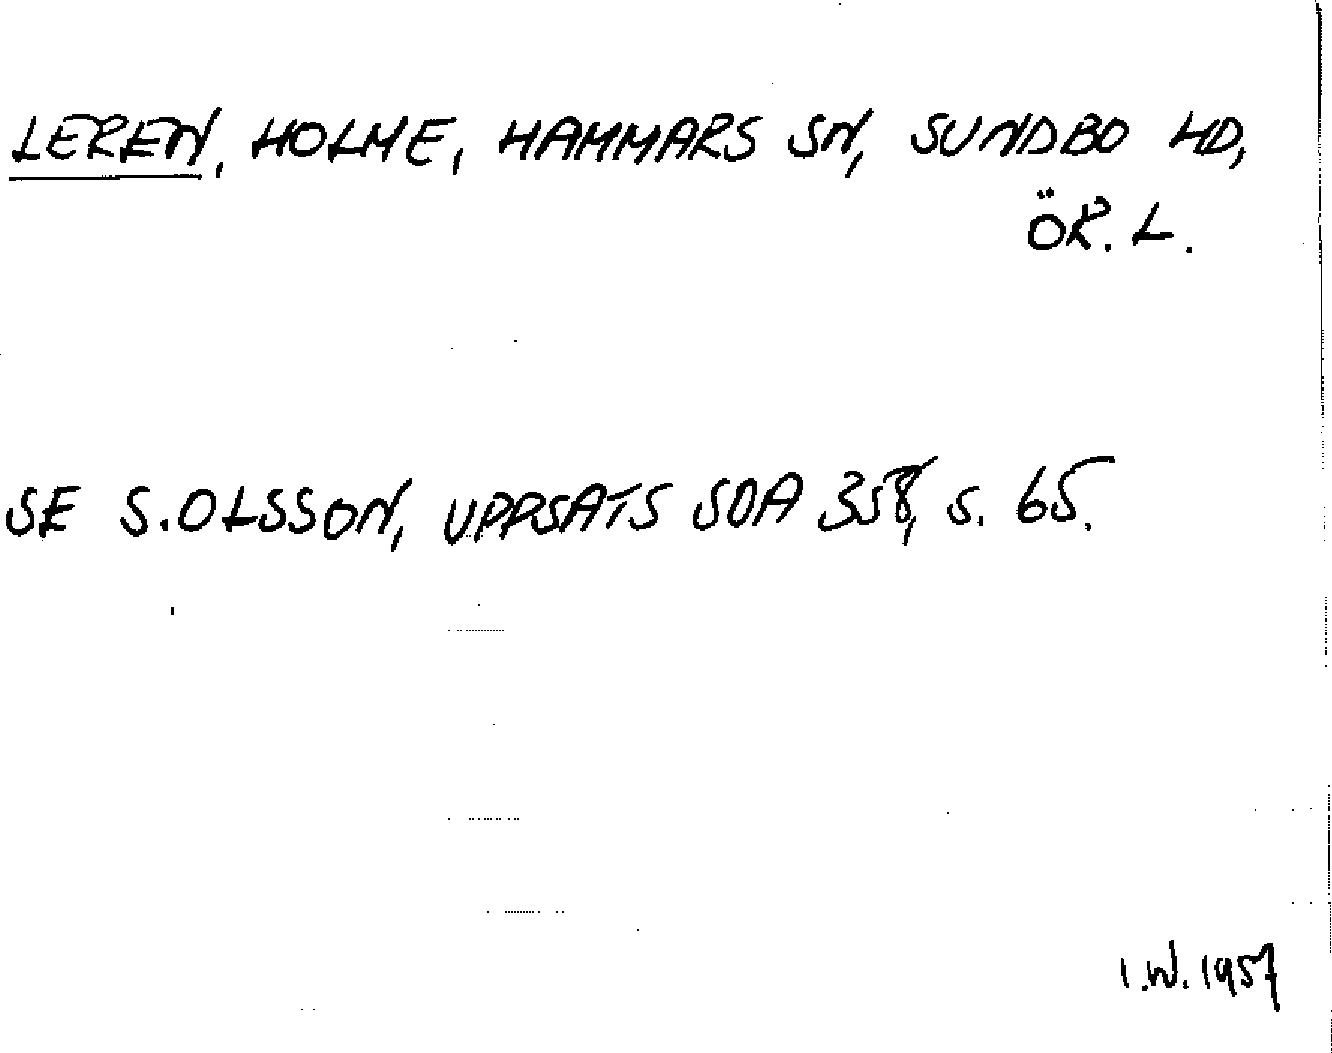 LEREN, HOLME, HAMMARS SN, SUNDBO HD,
ÖR. L.
SE S. OLSSON, UPPSATS SOA 358, s. 65.
I.W. 1957